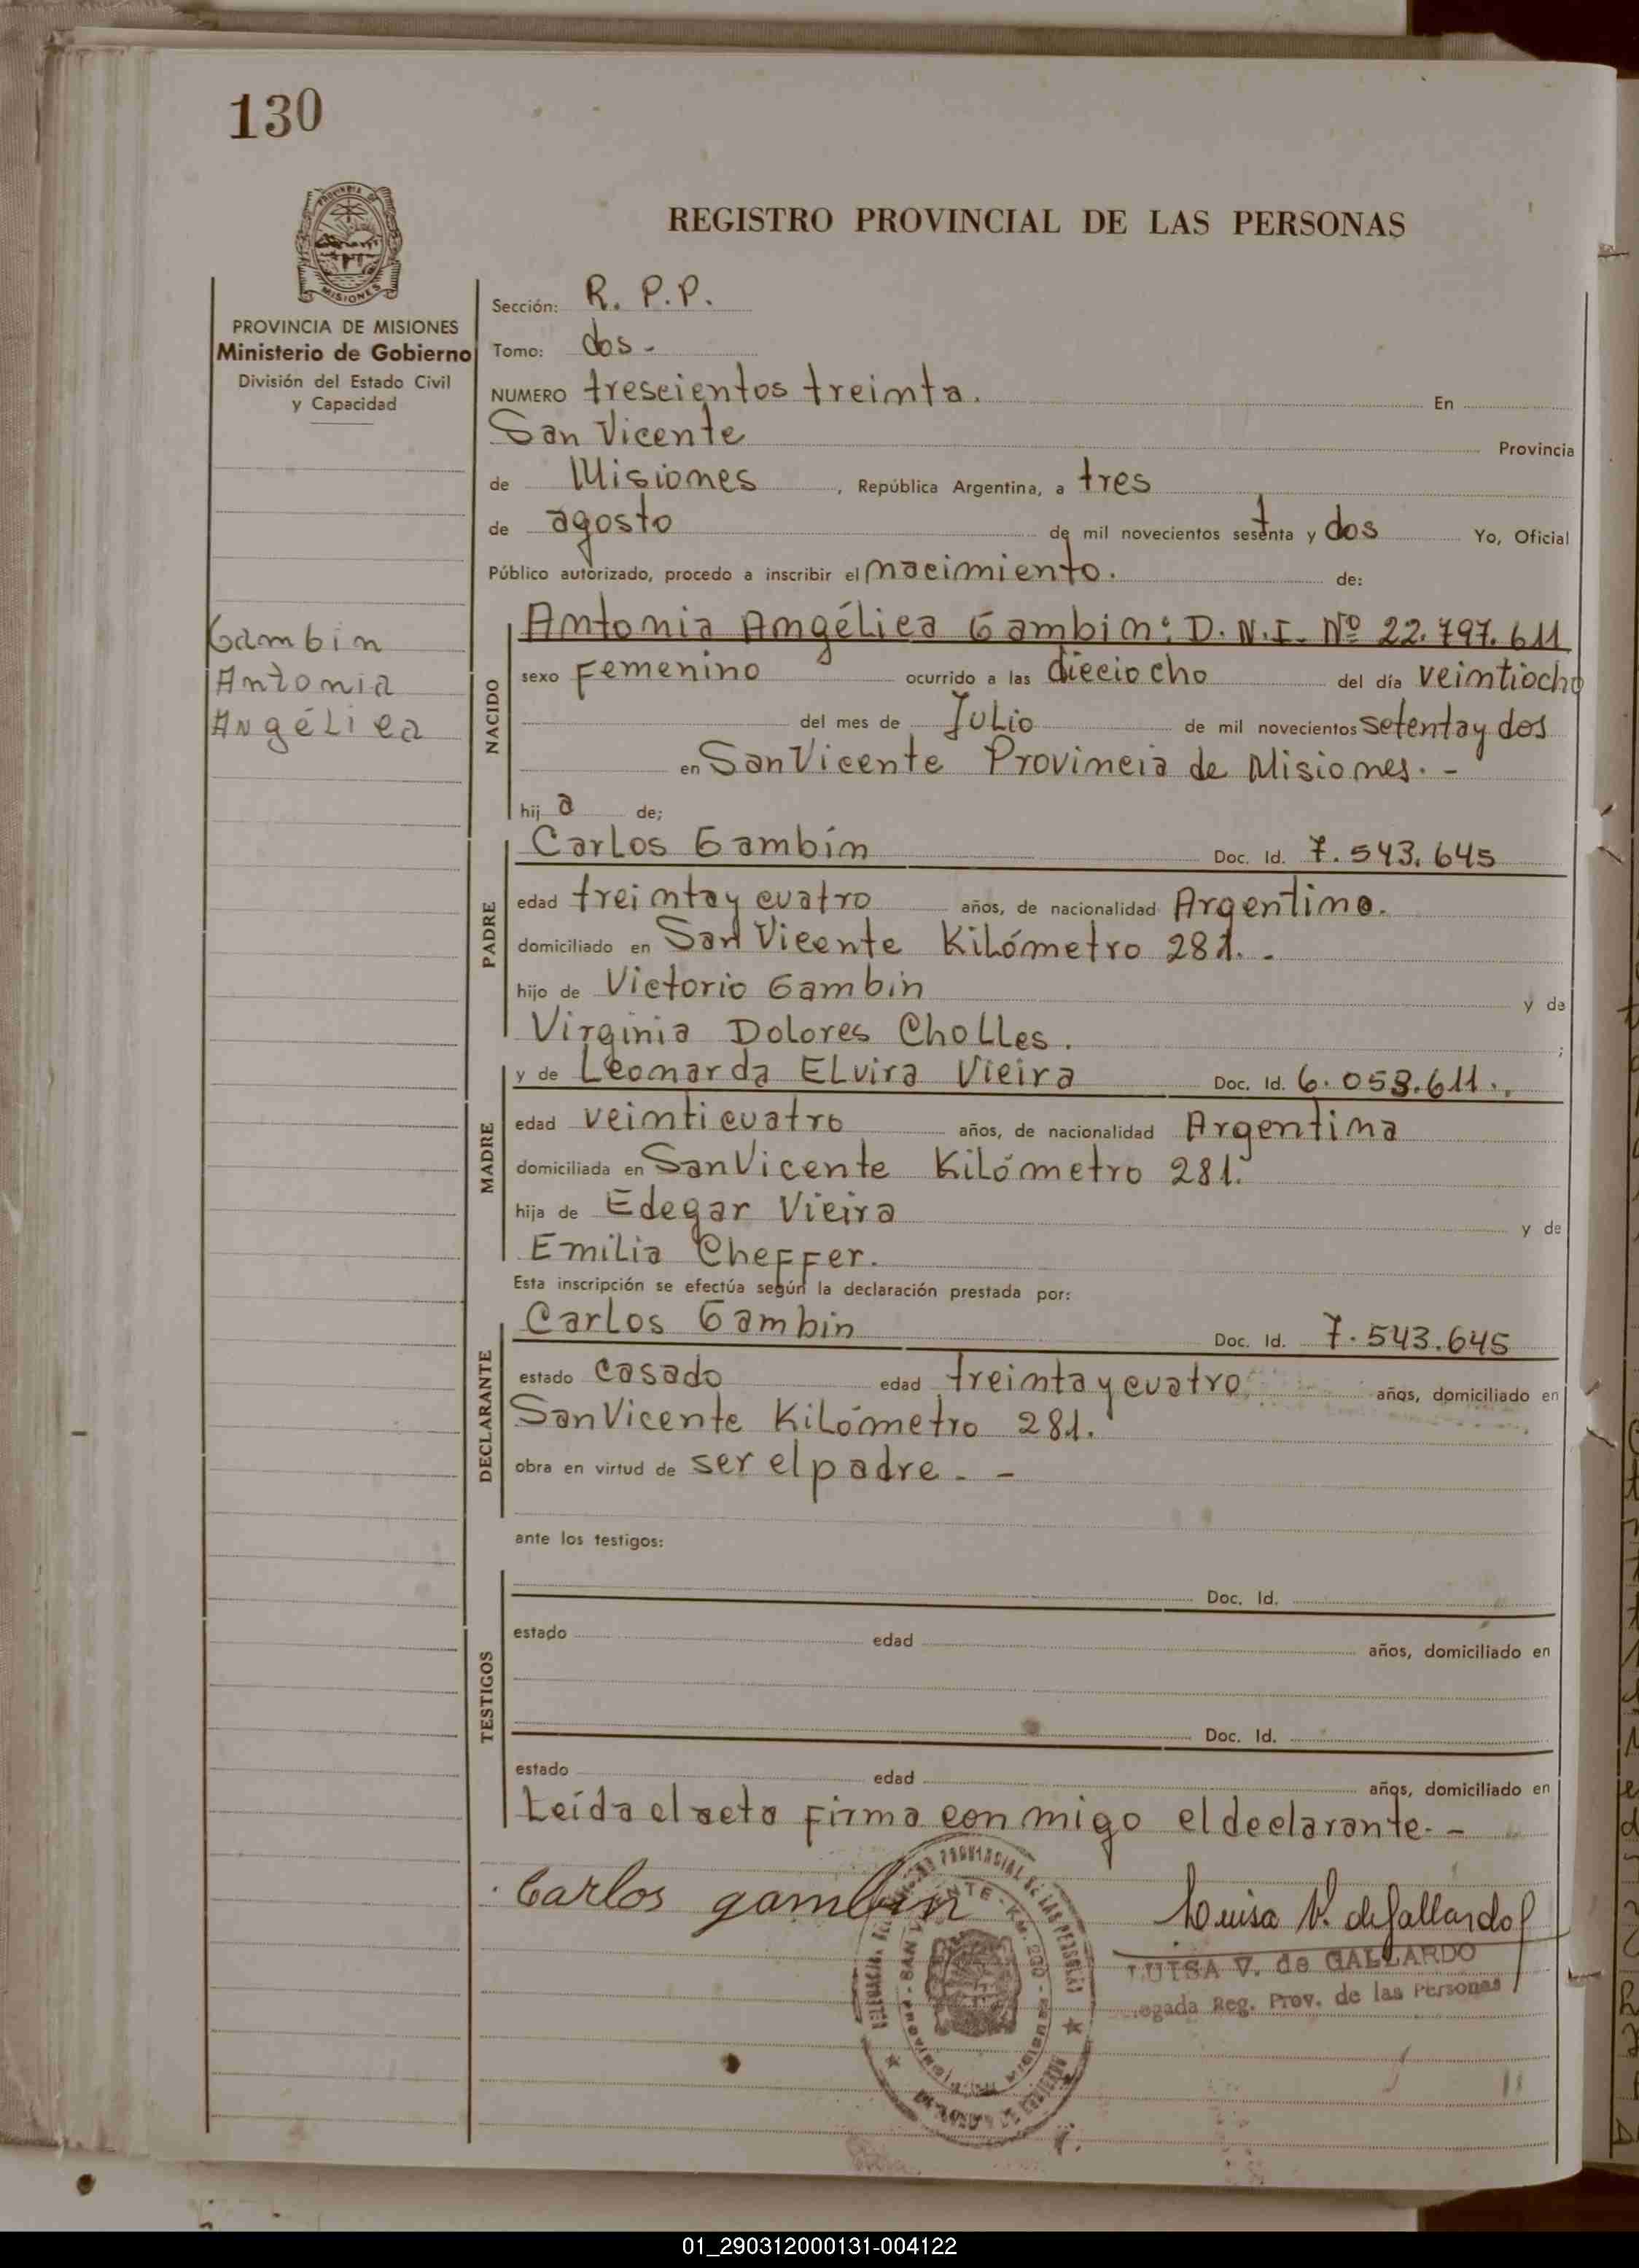 130
REGISTRO PROVINCIAL DE LAS PERSONAS
MISIONES
PROVINCIA DE MISIONES
Ministerio de Gobierno
División del Estado Civil
y Capacidad
Sección: R. P.P.
Tomo: dos-
NUMERO trescientos treinta. En
San Vicente Provincia
de Misiones, República Argentina, a tres
de agosto de mil novecientos setenta y dos Yo, Oficial
Público autorizado, procedo a inscribir el nacimiento. de:
Gambin
Antonia
Angélica
NACIDO
Antonia Angélica Gambin: D.N.I. Nº 22.797.611
sexo Femenino ocurrido a las dieciocho del día veintiocho
del mes de Julio de mil novecientos setenta y dos
en San Vicente Provincia de Misiones. -
hij a de;
PADRE
Carlos Gambin Doc. Id. 7.543.645
edad treinta y cuatro años, de nacionalidad Argentino.
domiciliado en San Vicente Kilómetro 281. -
hijo de Victorio Gambin y de
Virginia Dolores Cholles. ;
MADRE
y de Leonarda Elvira Vieira Doc. Id. 6.058.611.
edad veinticuatro años, de nacionalidad Argentina
domiciliada en San Vicente Kilómetro 281.
hija de Edegar Vieira y de
Emilia Cheffer.
Esta inscripción se efectúa según la declaración prestada por:
DECLARANTE
Carlos Gambin Doc. Id. 7.543.645
estado casado edad treinta y cuatro años, domiciliado en
San Vicente Kilómetro 281.
obra en virtud de ser el padre. -
ante los testigos:
TESTIGOS
Doc. Id.
estado edad años, domiciliado en
Doc. Id.
estado edad años, domiciliado en
Leída el acta firma con migo el declarante. -
Carlos gambin
Luisa V. de Gallardo
LUISA V. de GALLARDO
Reg. Prov. de las Personas
PROVINCIAL DE LAS PERSONAS
01_290312000131-004122